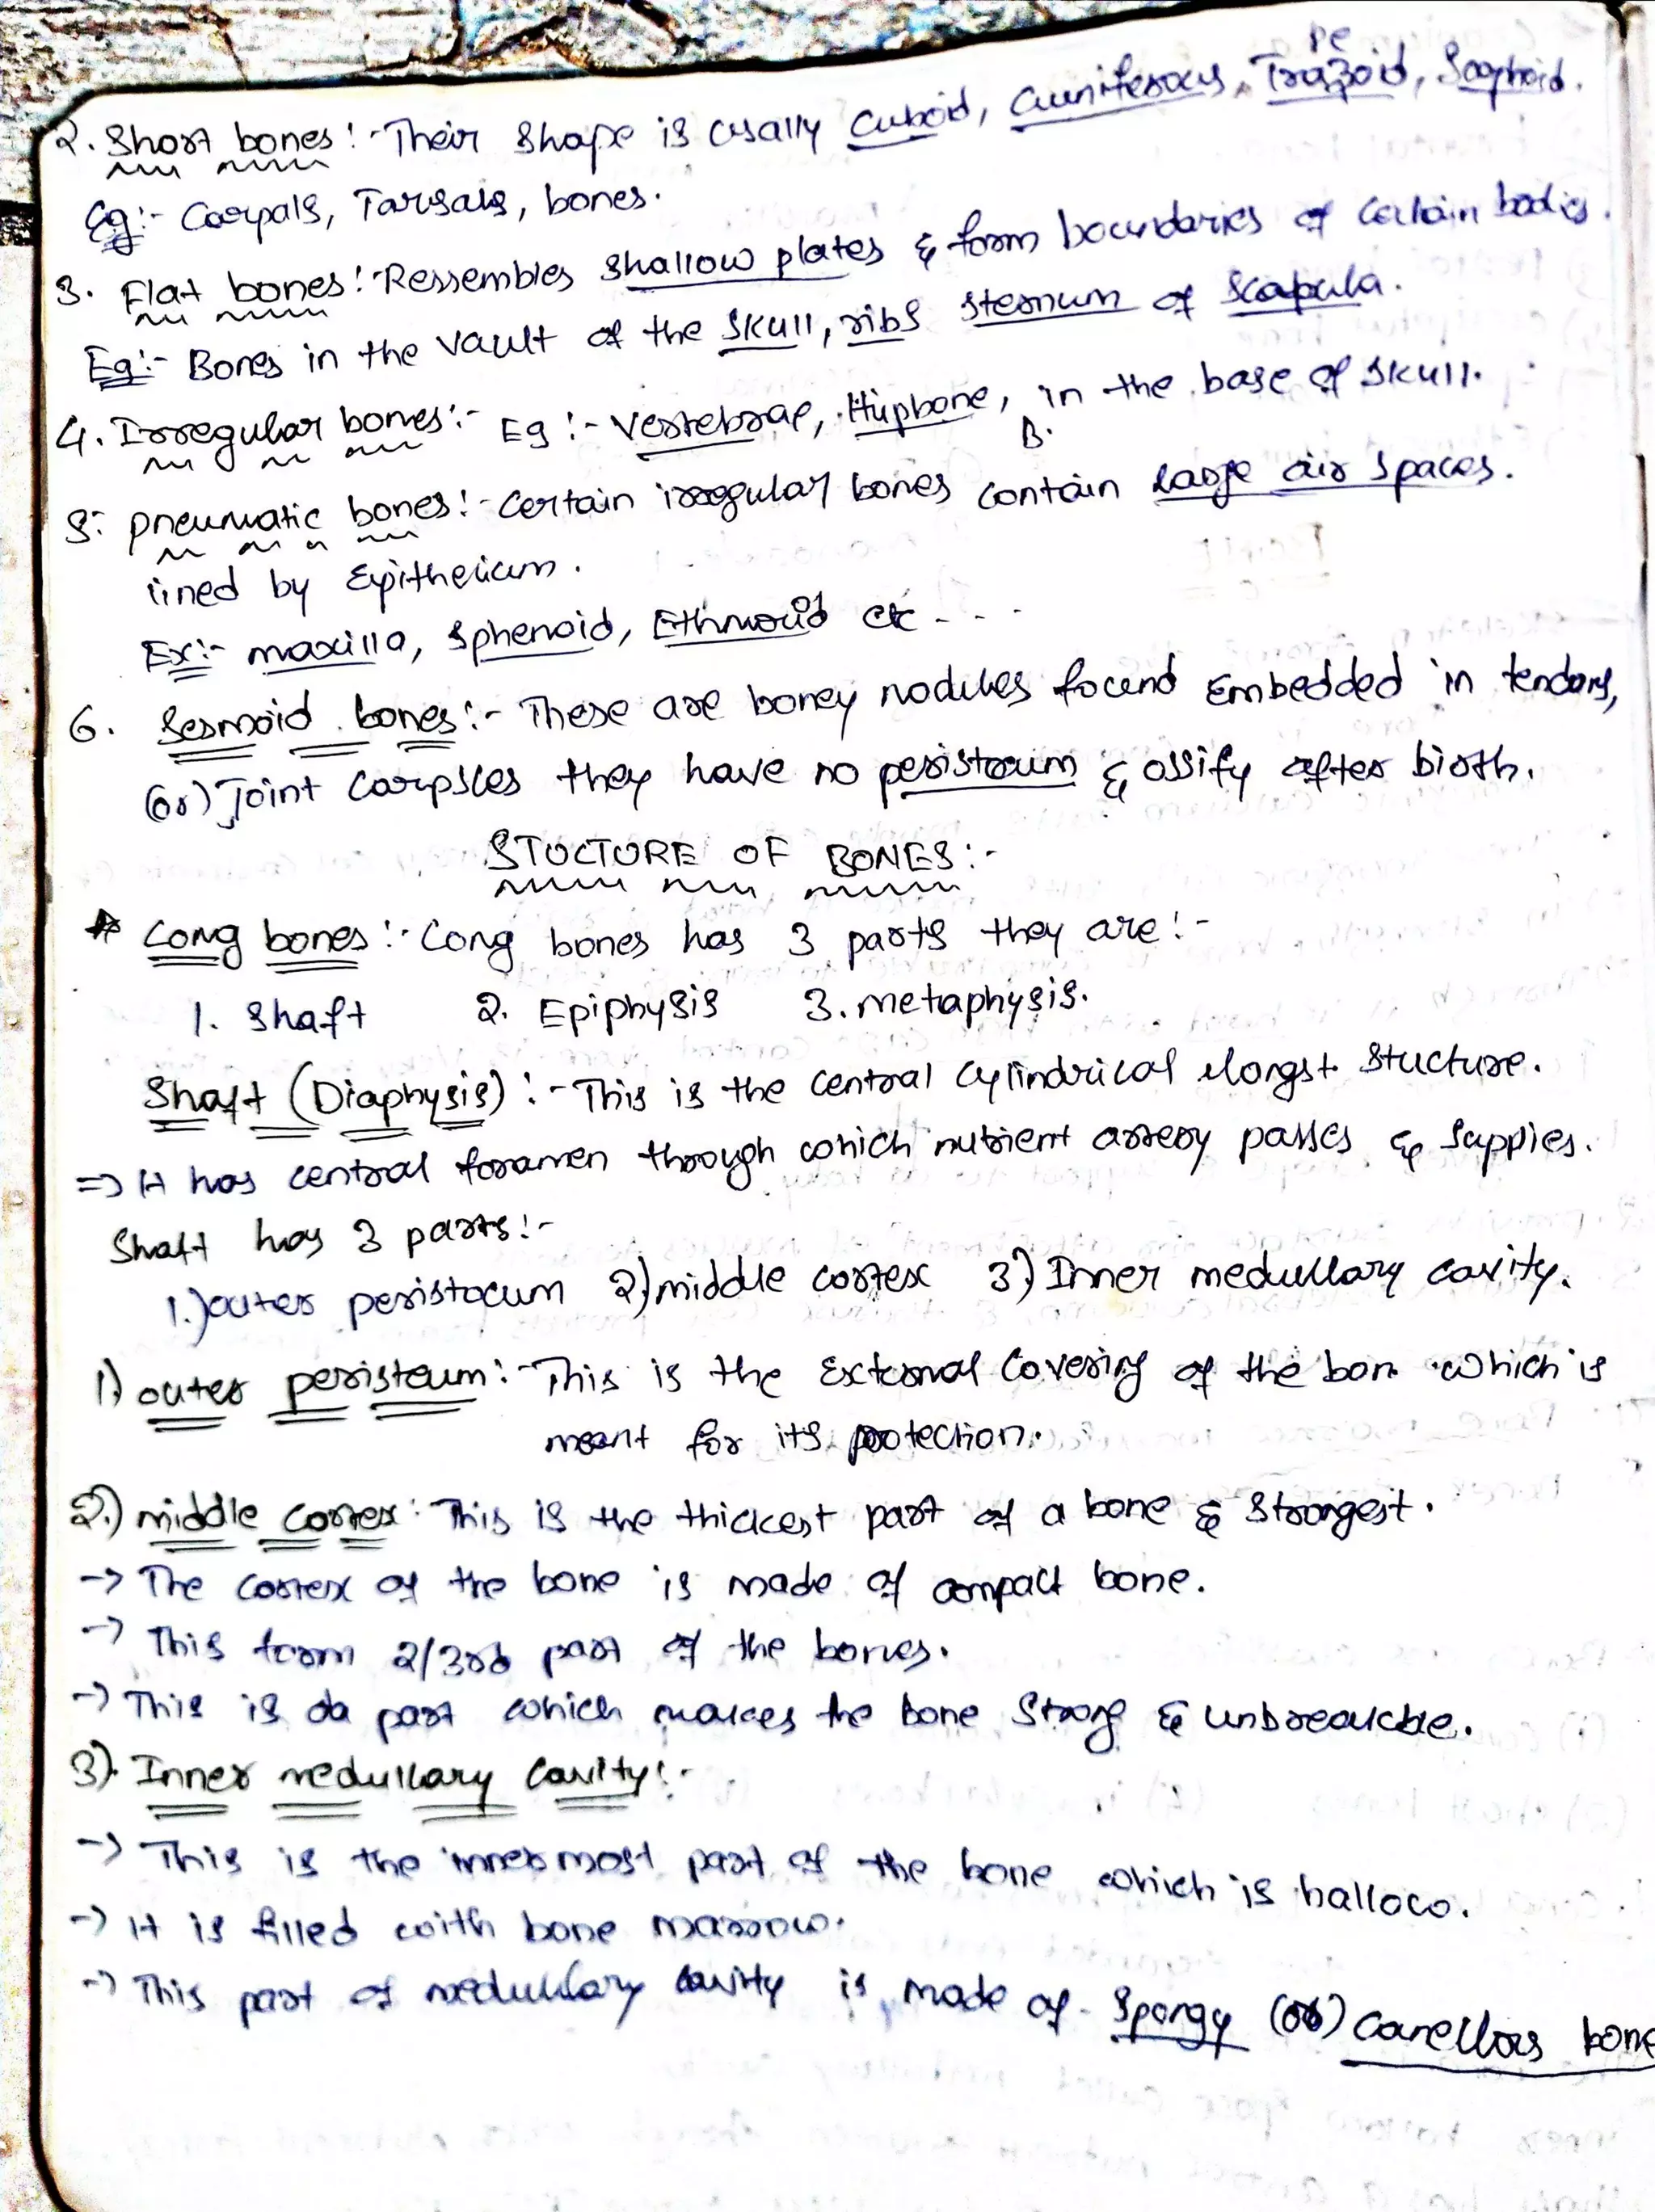 2. Short bones:- Their Shape is usally Cuboid, Cuniferous, Trapezoid, Scaphoid.
Eg:- Carpals, Tarsals, bones.
3. Flat bones:- Ressembles Shallow plates & form boundaries of Certain bodies.
Eg:- Bones in the vault of the Skull, ribs Sternum of Scapula.
4. Irregular bones:- Eg:- Vertebrae, Hipbone, B. in the base of Skull.
5. pneumatic bones:- Certain irregular bones contain large air spaces.
lined by Epithelium.
Ex:- maxilla, Sphenoid, Ethmoid etc - - -
6. Sesmoid bones:- These are boney nodules found Embedded in tendons,
(or) Joint Carpsles they have no peristoum & ossify after birth.
STUCTURE OF BONES:-
* Long bones:- Long bones has 3 parts they are:-
1. Shaft 2. Epiphysis 3. metaphysis.
Shaft (Diaphysis):- This is the central cylindrical longst Stucture.
=> It has central foramen through which nutrient artery passes & Supplies.
Shaft has 3 parts:-
1.) outer peristocum 2) middle cortex 3) Inner medullary cavity.
1) outer peristeum:- This is the External Covering of the bon which is
meant for its protection.
2.) middle cortex: This is the thickest part of a bone & Strongest.
-> The cortex of the bone is made of compact bone.
-> This form 2/3rd part of the bones.
-> This is da part which makes the bone Strong & unbreackble.
3). Inner medullary Cavity:-
-> This is the inner most part of the bone which is hallow.
-> It is filled with bone marrow.
-> This part of medullary cavity is made of Spongy (or) Canellous bone